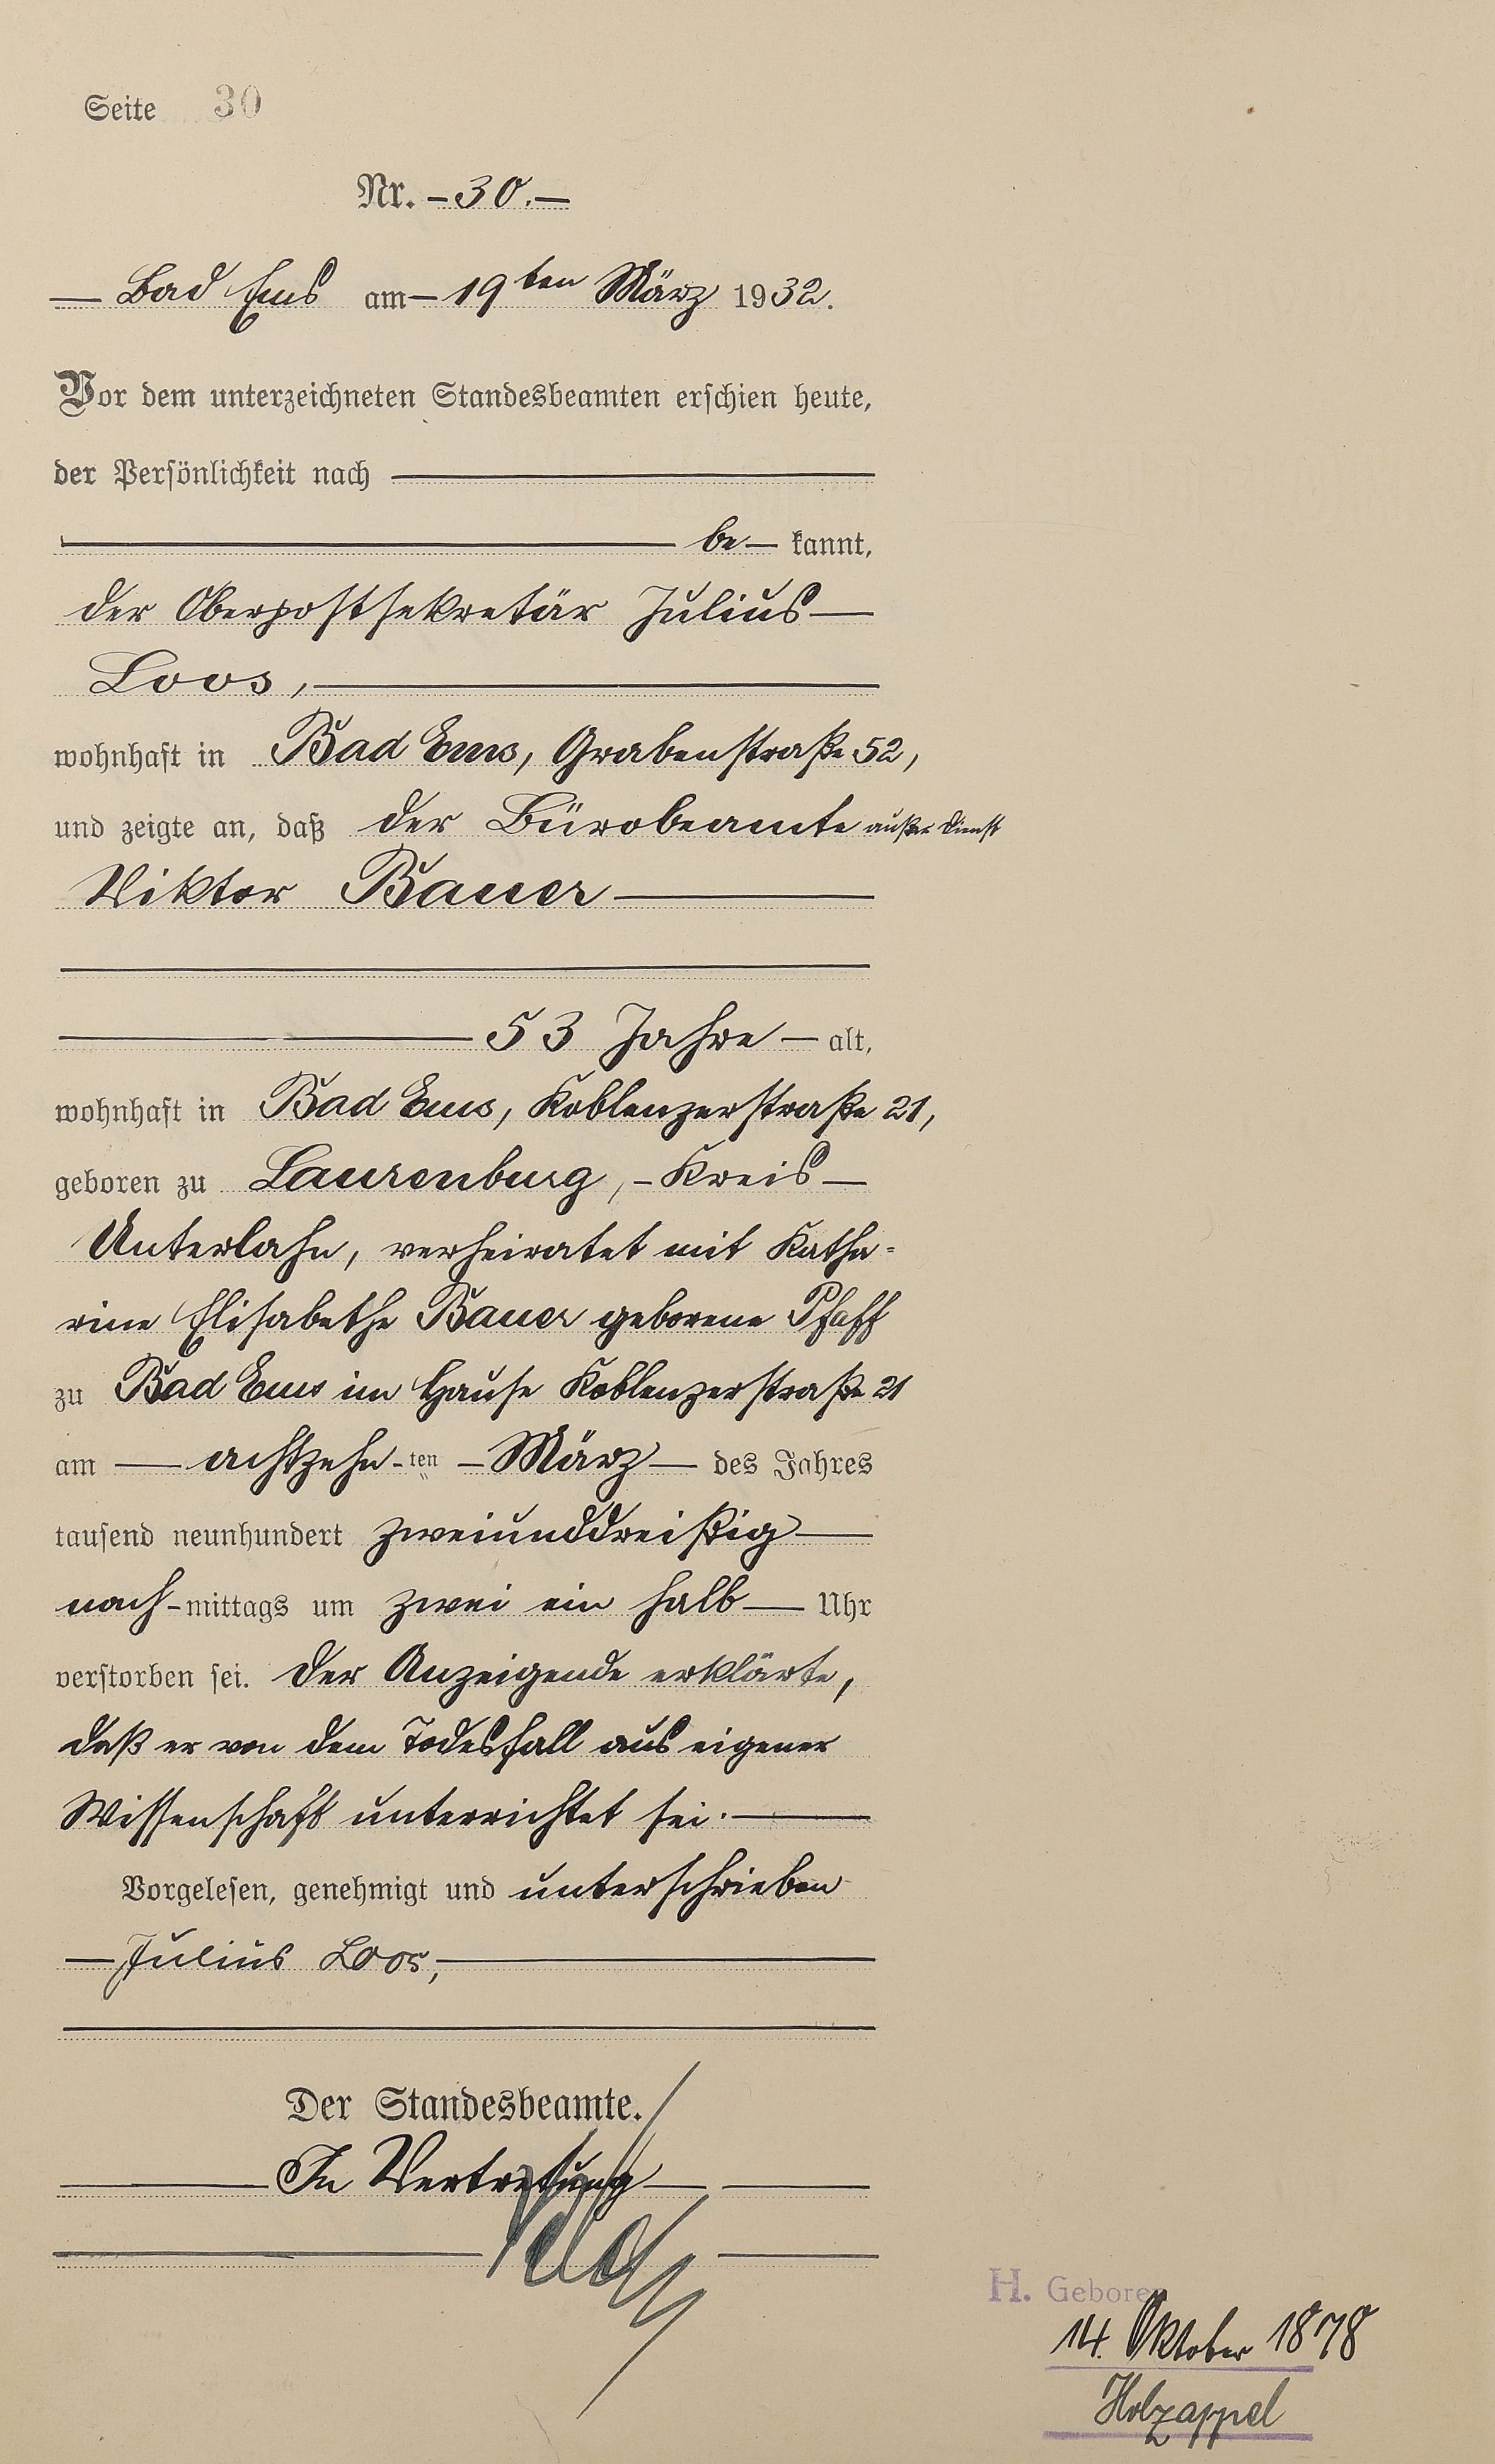 Seite 30
Nr. – 30. –
— Bad Ems am – 19ten März 1932.
Vor dem unterzeichneten Standesbeamten erschien heute,
der Persönlichkeit nach —
— be — kannt,
der Oberpostsekretär Julius —
Loos, —
wohnhaft in Bad Ems, Grabenstraße 52,
und zeigte an, daß der Bürobeamte außer Dienst
Viktor Bauer —
— 53 Jahre — alt,
wohnhaft in Bad Ems, Koblenzerstraße 21,
geboren zu Laurenburg, – Kreis —
Unterlahn, verheiratet mit Katha=
rine Elisabethe Bauer geborene Pfaff
zu Bad Ems im Hause Koblenzerstraße 21
am — achtzehn-ten – März — des Jahres
tausend neunhundert zweiunddreißig —
nach-mittags um zwei ein halb — Uhr
verstorben sei. Der Anzeigende erklärte,
daß er von dem Todesfall aus eigener
Wissenschaft unterrichtet sei. —
Vorgelesen, genehmigt und unterschrieben
— Julius Loos, —
Der Standesbeamte.
— In Vertretung —
H. Geboren
14. Oktober 1878
Holzappel